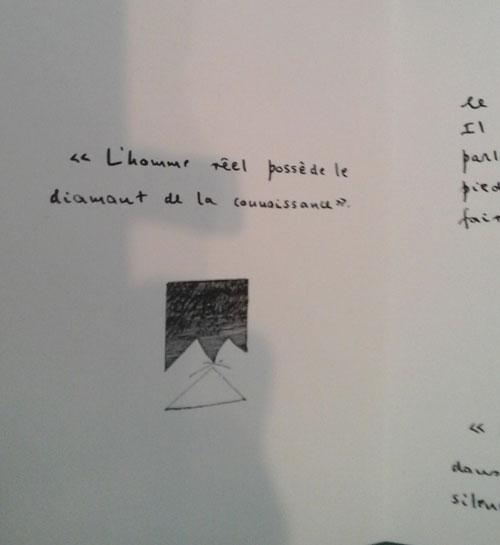 « L'homme réel possède le
diamant de la connaissance».
le
Il
parl
pied
fair
«
dans
silen